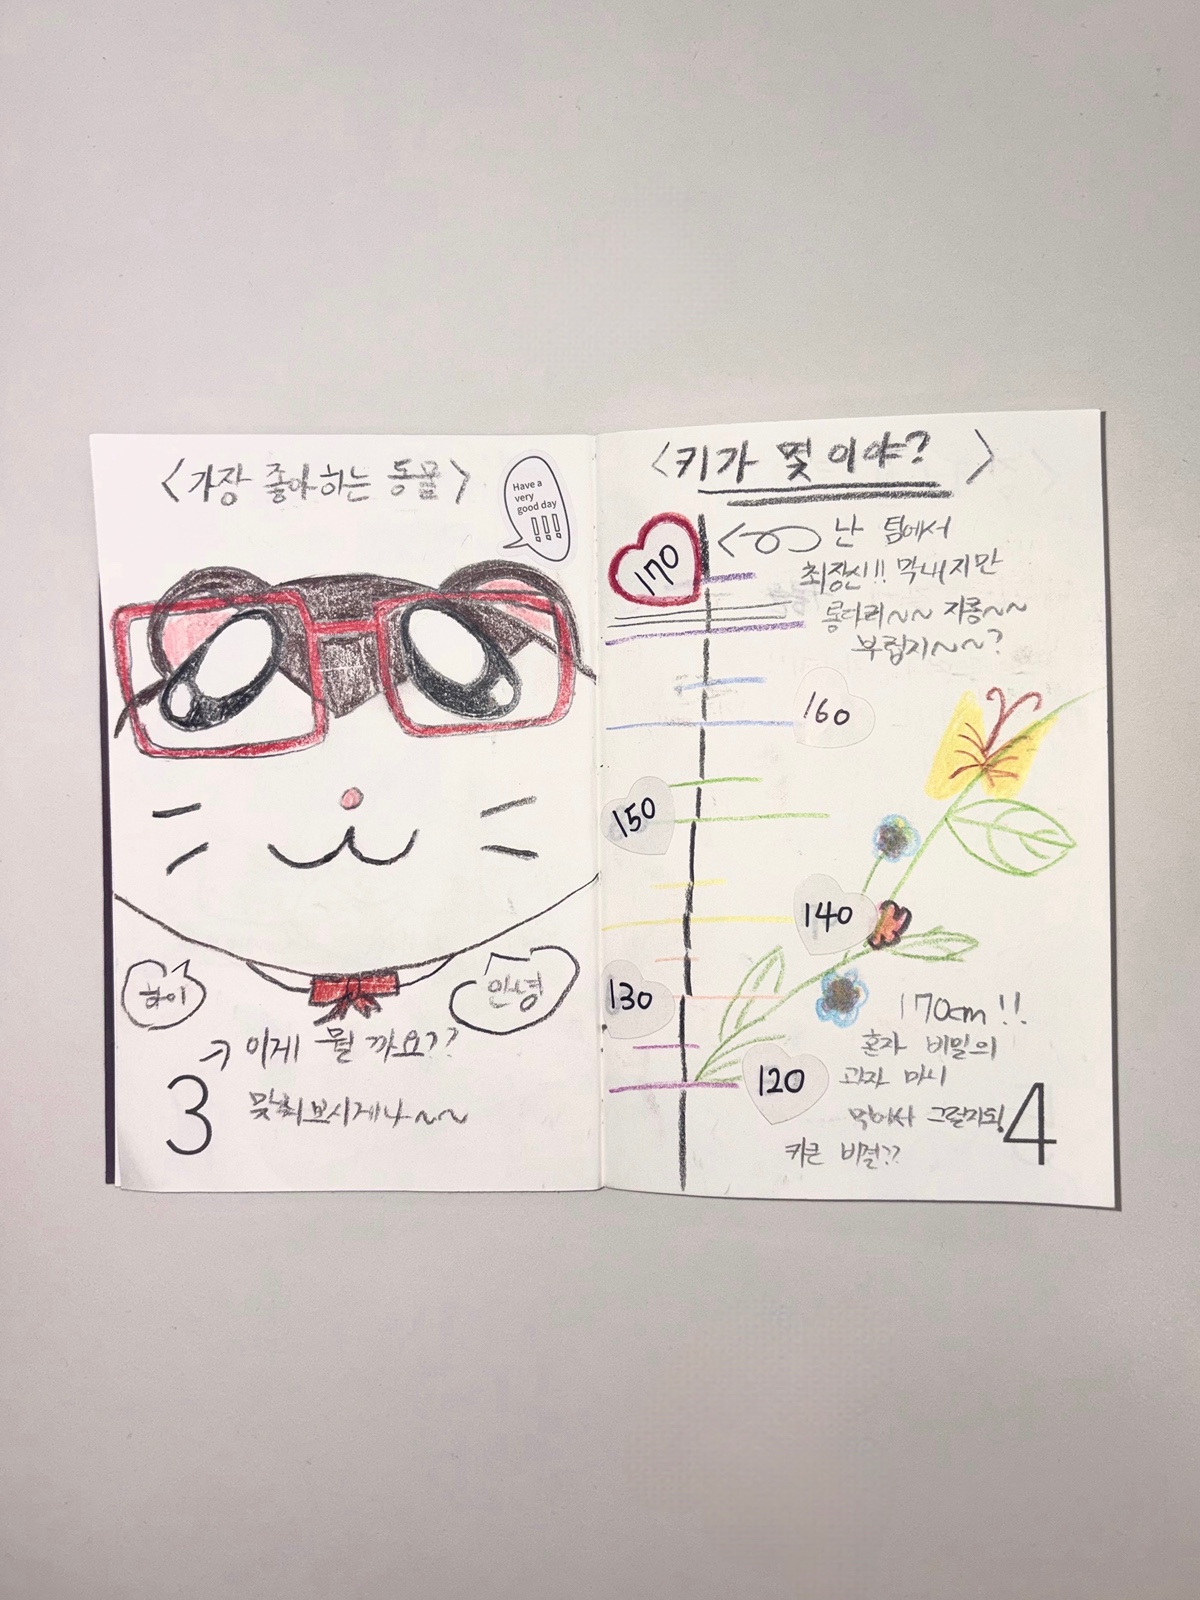 <가장 좋아하는 동물>
Have a
very
good day
!!!
하이
안녕
이게 뭘까요??
맞춰보시게나~~
3
<키가 몇이야?>
170
난 팀에서
최장신!! 막내지만
롱다리~~ 지롱~~
부럽지~~?
160
150
140
130
120
170cm!!
혼자 비밀의
과자 마니
먹어서 그럴지도!
키큰 비결??
4